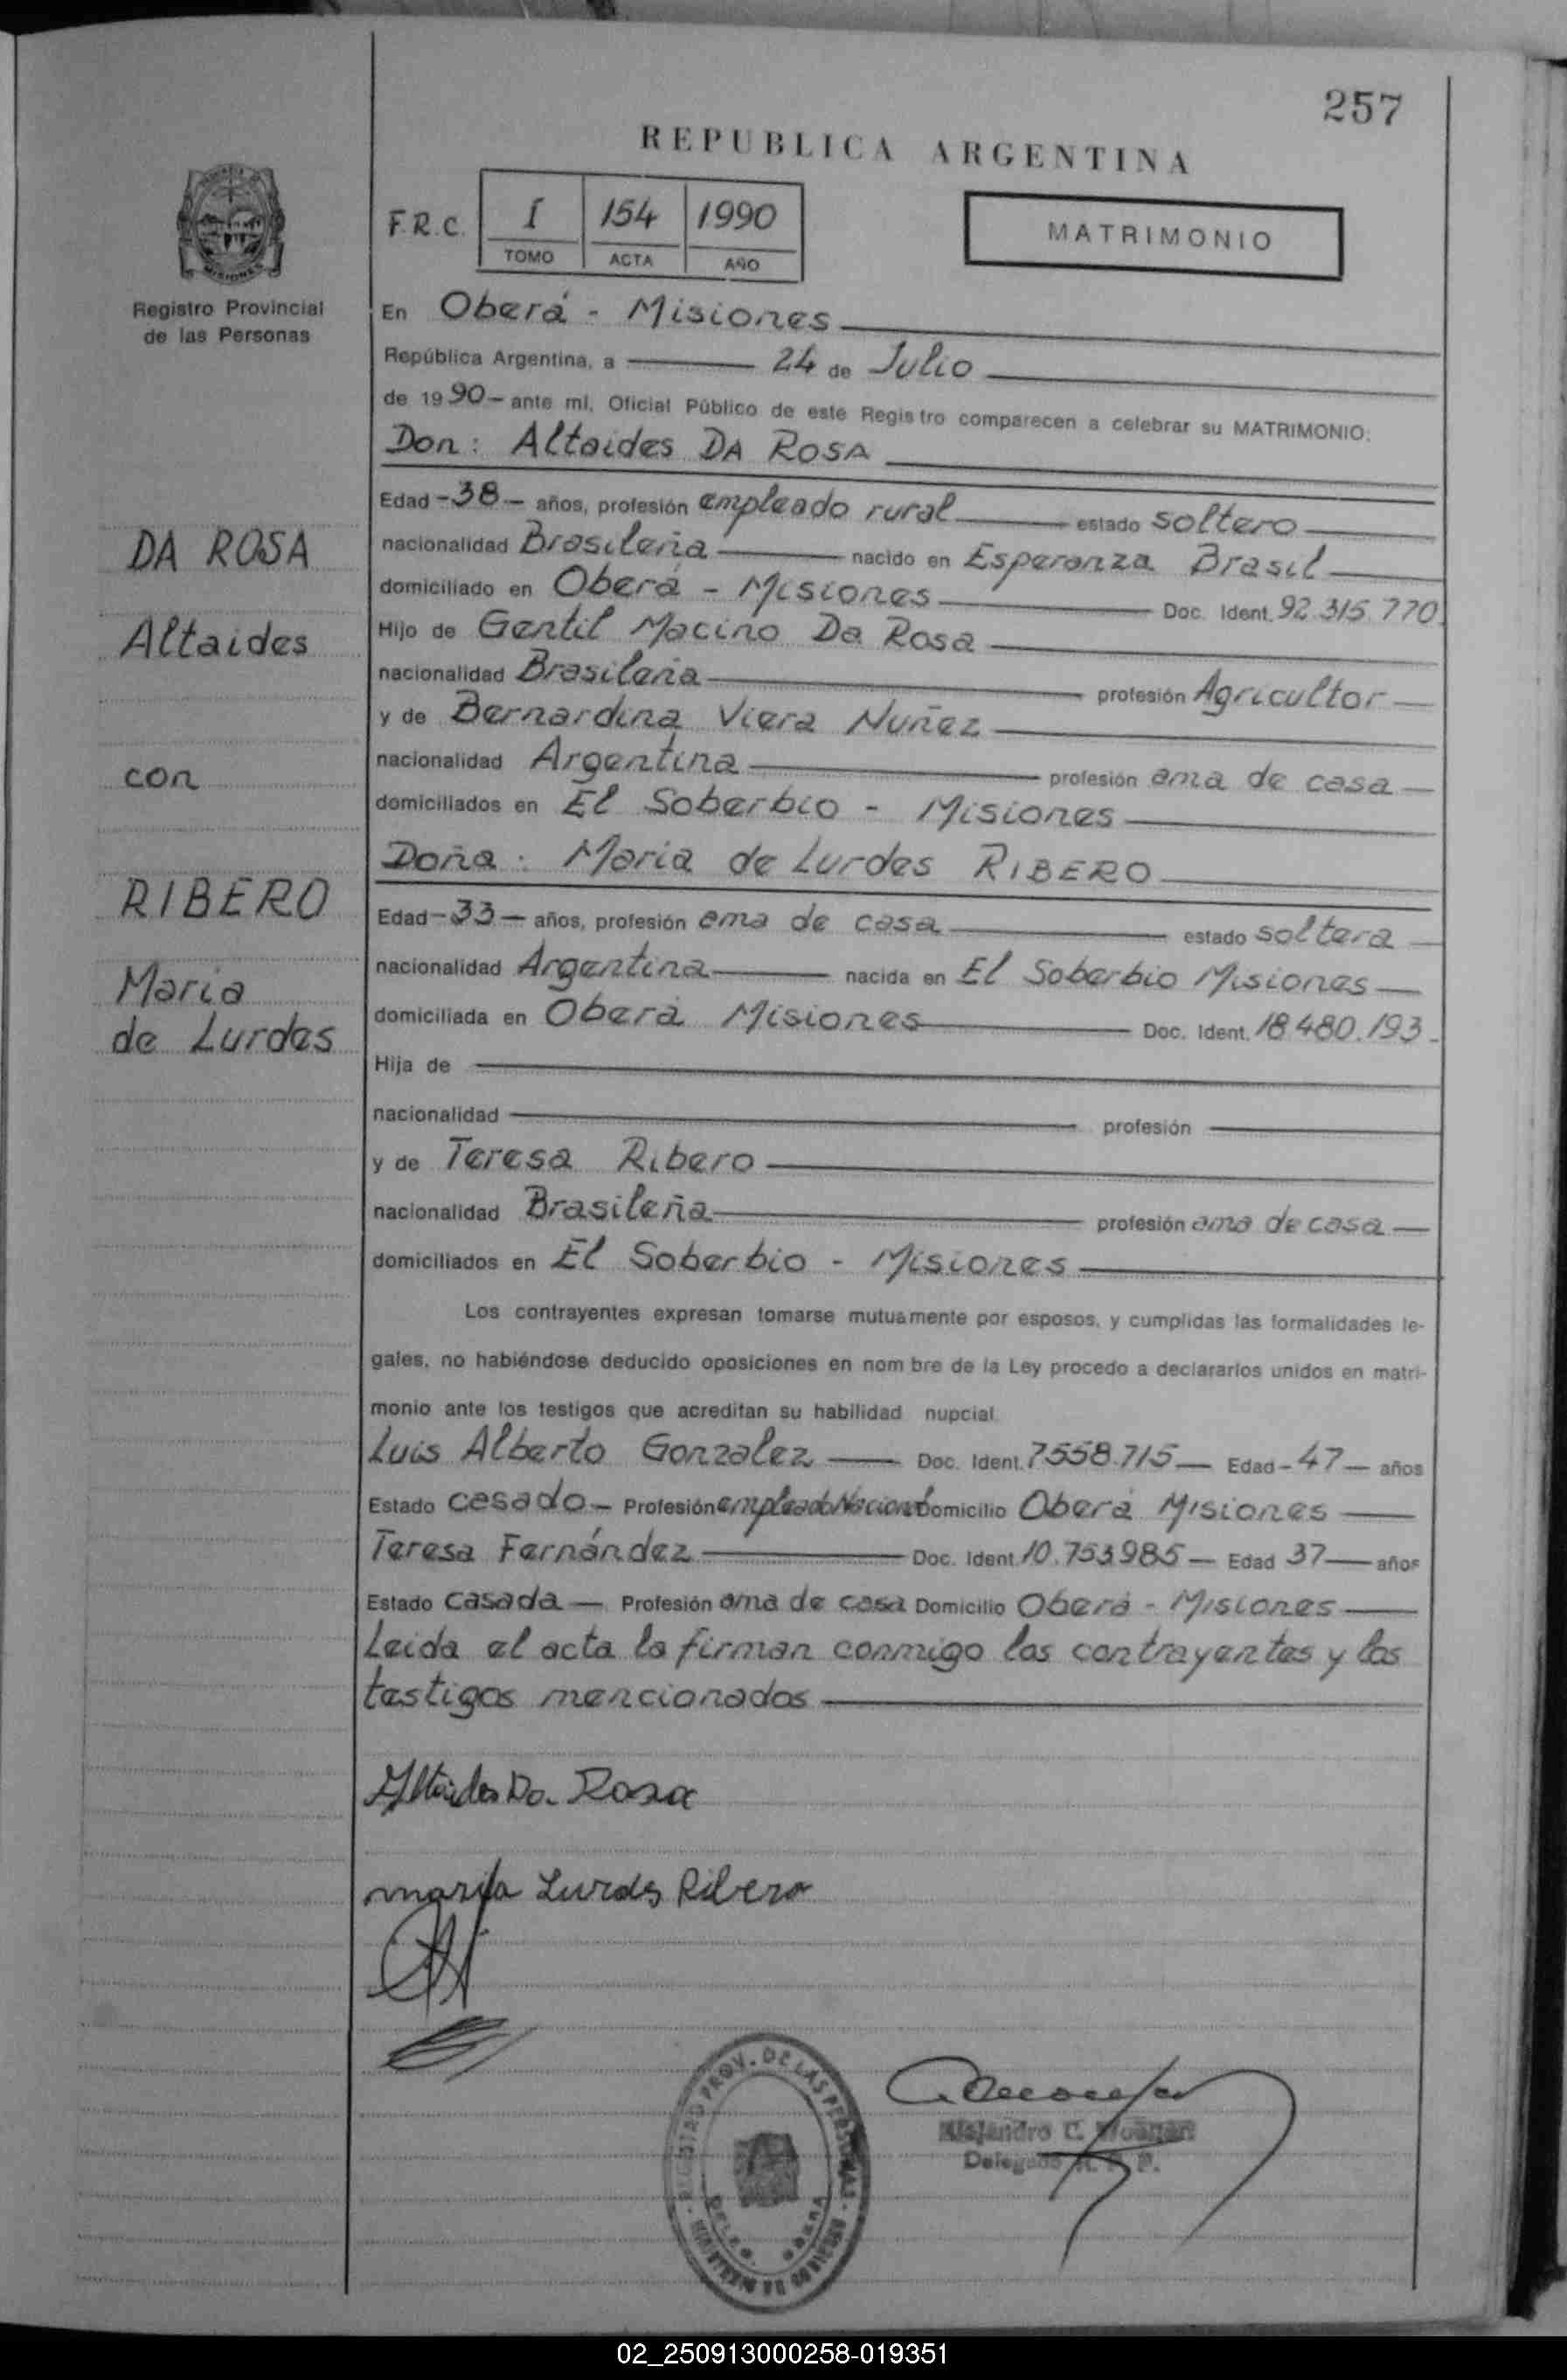 257
REPUBLICA ARGENTINA
F.R.C. I 154 1990
TOMO ACTA AÑO
MATRIMONIO
MISIONES
Registro Provincial
de las Personas
En Oberá - Misiones
República Argentina, a 24 de Julio
de 1990 - ante mí, Oficial Público de este Registro comparecen a celebrar su MATRIMONIO:
Don: Altaides DA ROSA
Edad -38- años, profesión empleado rural estado soltero
nacionalidad Brasileña nacido en Esperanza Brasil
domiciliado en Oberá - Misiones Doc. Ident. 92.315.770
Hijo de Gentil Macino Da Rosa
nacionalidad Brasileña profesión Agricultor
y de Bernardina Viera Nuñez
nacionalidad Argentina profesión ama de casa
domiciliados en El Soberbio - Misiones
Doña: Maria de Lurdes RIBERO
Edad -33- años, profesión ama de casa estado soltera
nacionalidad Argentina nacida en El Soberbio Misiones
domiciliada en Oberá Misiones Doc. Ident. 18.480.193-
Hija de
nacionalidad profesión
y de Teresa Ribero
nacionalidad Brasileña profesión ama de casa
domiciliados en El Soberbio - Misiones
DA ROSA
Altaides
con
RIBERO
Maria
de Lurdes
Los contrayentes expresan tomarse mutuamente por esposos, y cumplidas las formalidades le-
gales, no habiéndose deducido oposiciones en nom bre de la Ley procedo a declararlos unidos en matri-
monio ante los testigos que acreditan su habilidad nupcial.
Luis Alberto Gonzalez Doc. Ident. 7558.715 Edad -47- años
Estado casado - Profesión empleado Nacional Domicilio Oberá Misiones
Teresa Fernández Doc. Ident. 10.753.985 - Edad 37 años
Estado casada - Profesión ama de casa Domicilio Oberá - Misiones
Leida el acta la firman conmigo los contrayentes y los
testigos mencionados
Altaides Da Rosa
maria Lurdes Ribero
REGISTRO PROV. DE LAS PERSONAS
DELEG. OBERA
Alejandro C.
Delegado R. P. P.
02_250913000258-019351